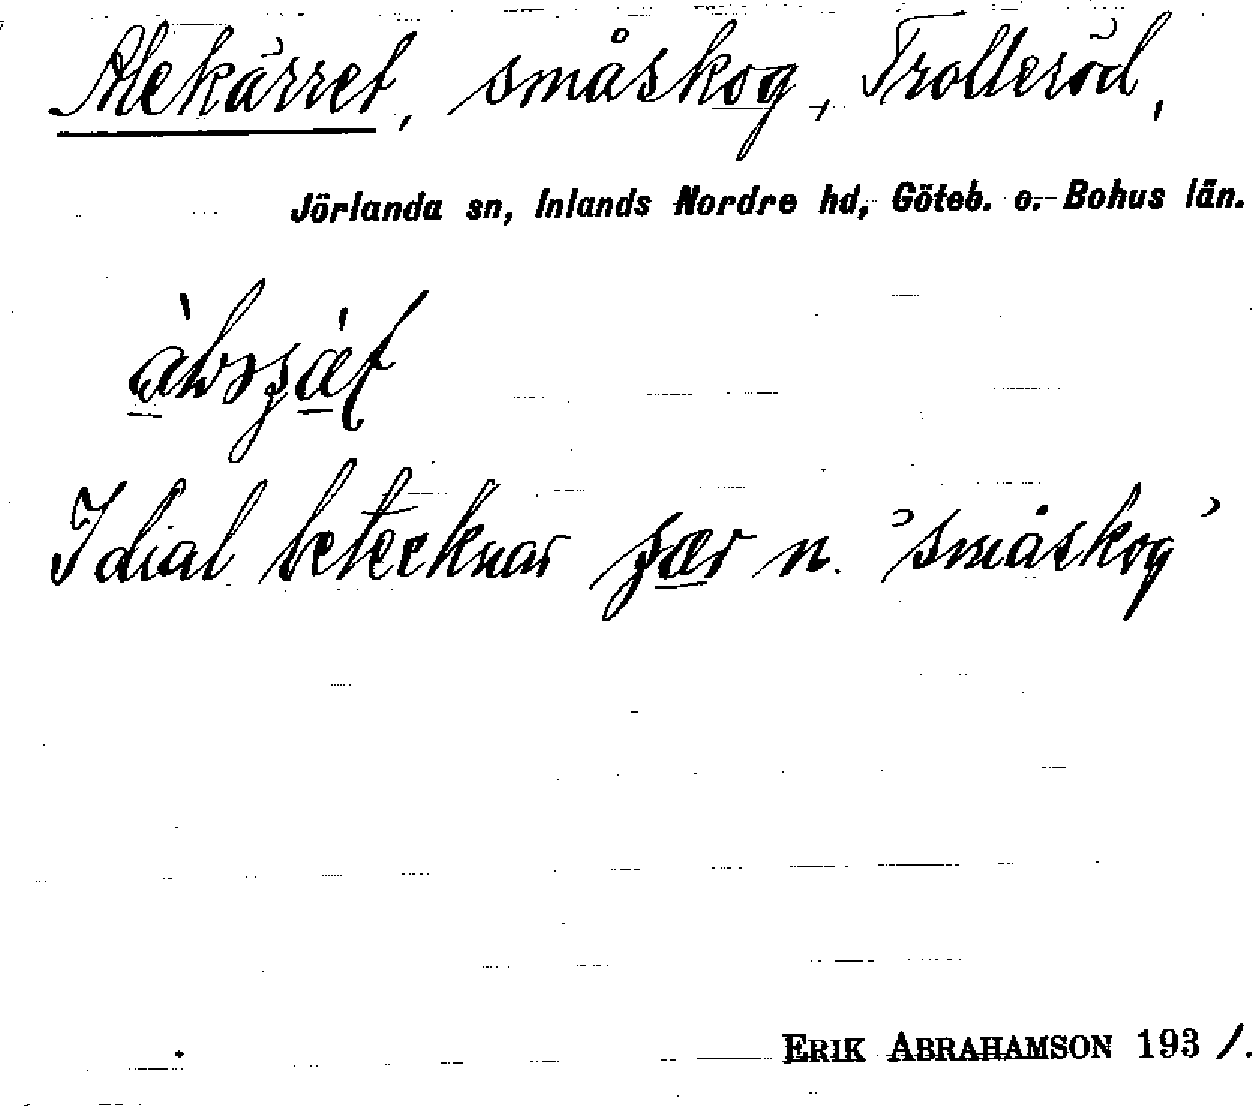 Alekärret, småskog, Trolleröd,
Jörlanda sn, Inlands Nordre hd, Göteb. o. Bohus län.
I dial betecknar n. 'småskog'
ERIK ABRAHAMSON 1931.